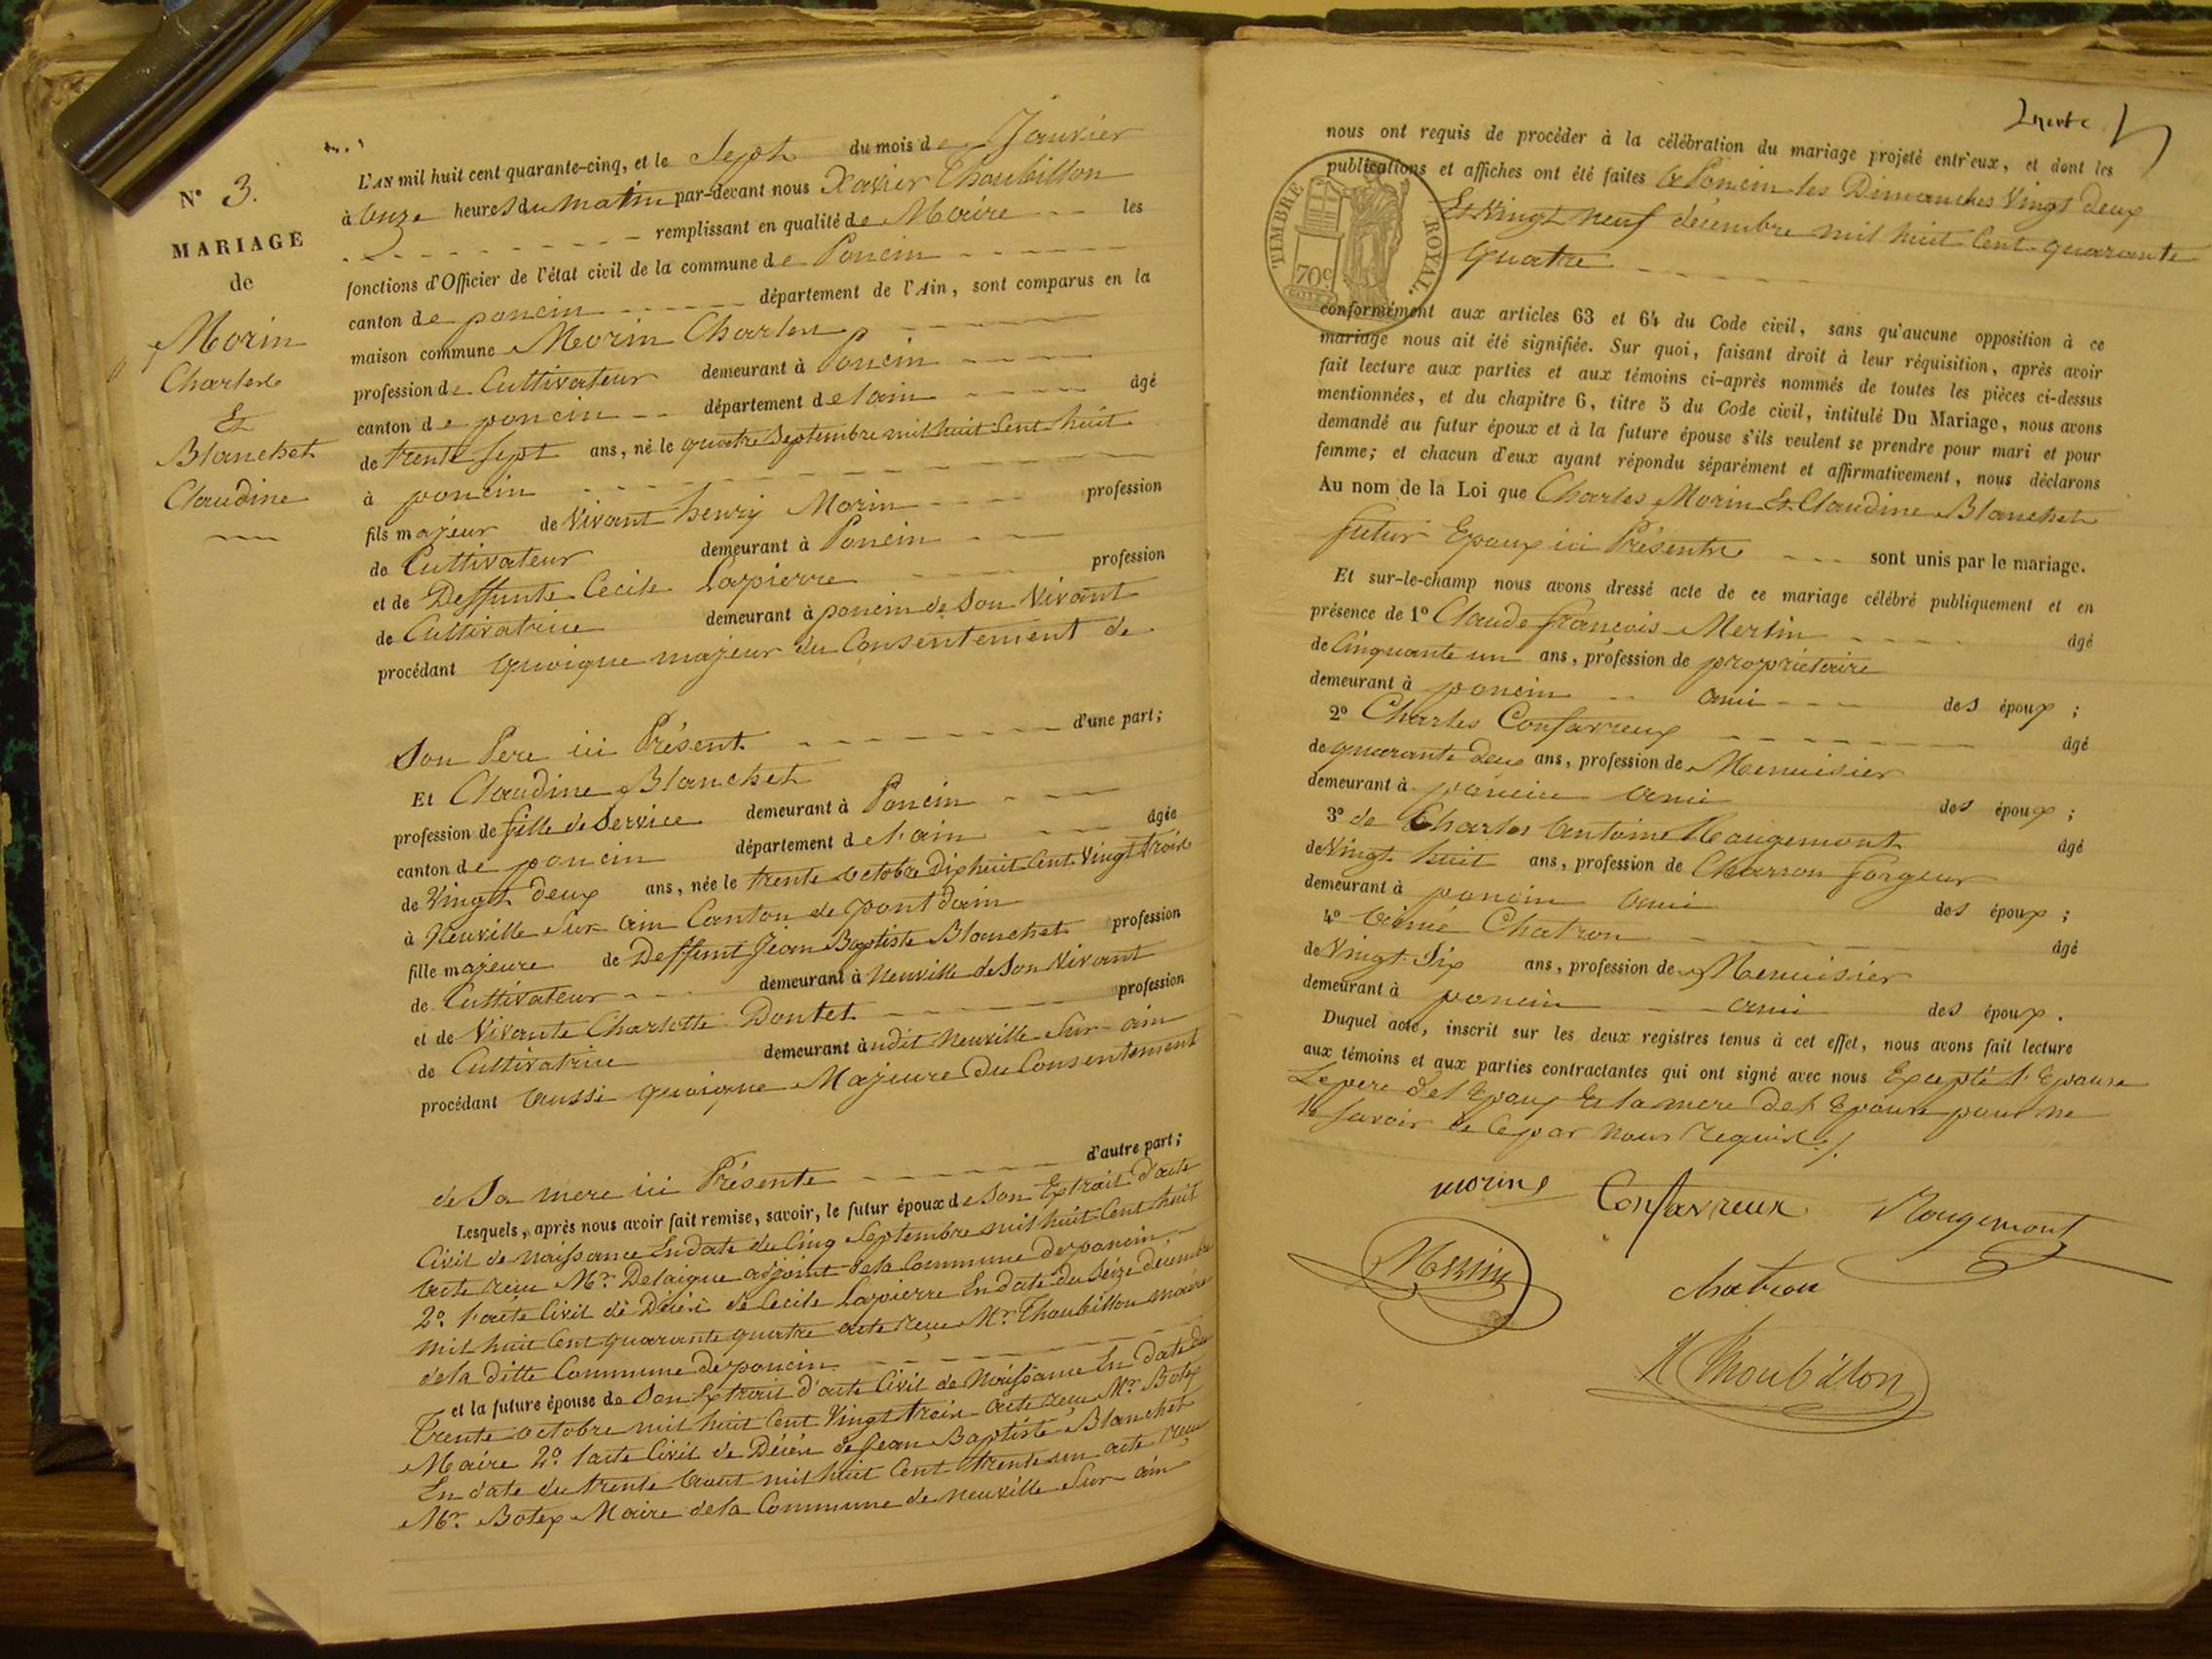 N° 3.
MARIAGE
de
Morin
Charles
Et
Blanchet
Claudine
L'AN mil huit cent quarante-cinq, et le Sept du mois de Janvier
à Onze heures du matin par-devant nous Xavier Thoubillon
remplissant en qualité de Maire les
fonctions d'Officier de l'état civil de la commune de Poncin
canton de poncin département de l'Ain, sont comparus en la
maison commune Morin Charles
profession de Cultivateur demeurant à Poncin
canton de poncin département de lain âgé
de trente sept ans, né le quatre Septembre mil huit Cent huit
à poncin
fils majeur de Vivant henry Morin profession
de Cultivateur demeurant à Poncin
et de Deffunte Cecile Lapierre profession
de Cultivatrice demeurant à poncin de Son Vivant
procédant quoique majeur du Consentement de
Son Pere ici Présent d'une part;
Et Claudine Blanchet
profession de fille de Service demeurant à Poncin
canton de poncin département de l'ain âgée
de Vingt deux ans, née le trente octobre dix huit Cent Vingt trois
à Neuville Sur ain Canton de pont dain
fille majeure de Deffunt Jean Baptiste Blanchet profession
de Cultivateur demeurant à Neuville de Son Vivant
et de Vivante Charlotte Dontet profession
de Cultivatrice demeurant àudit Neuville Sur ain
procédant aussi quoique Majeure du Consentement
de Sa mere ici Présente d'autre part;
Lesquels, après nous avoir fait remise, savoir, le futur époux de Son Extrait d'acte
Civil de Naissance En date du Cinq Septembre mil huit Cent huit
acte reçu Mr. Delaigue adjoint de la Commune de poncin
2° l'acte Civil de Décès de Cecile Lapierre En date du Seize décembre
mil huit Cent quarante quatre acte reçu Mr Thoubillon maire
de la ditte Commune de poncin
et la future épouse de Son Extrait d'acte Civil de Naissance En date du
Trente octobre mil huit Cent Vingt trois acte reçu Mr. Botex
Maire 2° l'acte Civil de Décès de Jean Baptiste Blanchet
En date du trente aout mil huit Cent trente un acte reçu
Mr. Botex Maire de la Commune de Neuville Sur ain
nous ont requis de procéder à la célébration du mariage projeté entr'eux, et dont les
publications et affiches ont été faites a Poncin les Dimanches Vingt deux
Et Vingt neuf décembre mil huit Cent quarante
quatre
TIMBRE ROYAL.
70c
conformément aux articles 63 et 64 du Code civil, sans qu'aucune opposition à ce
mariage nous ait été signifiée. Sur quoi, faisant droit à leur réquisition, après avoir
fait lecture aux parties et aux témoins ci-après nommés de toutes les pièces ci-dessus
mentionnées, et du chapitre 6, titre 5 du Code civil, intitulé Du Mariage, nous avons
demandé au futur époux et à la future épouse s'ils veulent se prendre pour mari et pour
femme; et chacun d'eux ayant répondu séparément et affirmativement, nous déclarons
Au nom de la Loi que Charles Morin Et Claudine Blanchet
futur Epoux ici Présents sont unis par le mariage.
Et sur-le-champ nous avons dressé acte de ce mariage célébré publiquement et en
présence de 1° Claude françois Merlin âgé
de Cinquante un ans, profession de propriétaire
demeurant à poncin ami des époux;
2° Charles Confavreux âgé
de quarante deux ans, profession de Menuisier
demeurant à poncin ami des époux;
3° de Charles antoine Rougemont âgé
de Vingt huit ans, profession de Charron forgeur
demeurant à poncin ami des époux;
4° aimé Chatron âgé
de Vingt Six ans, profession de Menuisier
demeurant à poncin ami des époux.
Duquel acte, inscrit sur les deux registres tenus à cet effet, nous avons fait lecture
aux témoins et aux parties contractantes qui ont signé avec nous Excepté l'Epouse
Le pere del Epoux Et la mere del Epouse pour ne
le Savoir de Ce par nous requis
morin Confavreux Rougemont
Merlin
chatron
X Thoubillon